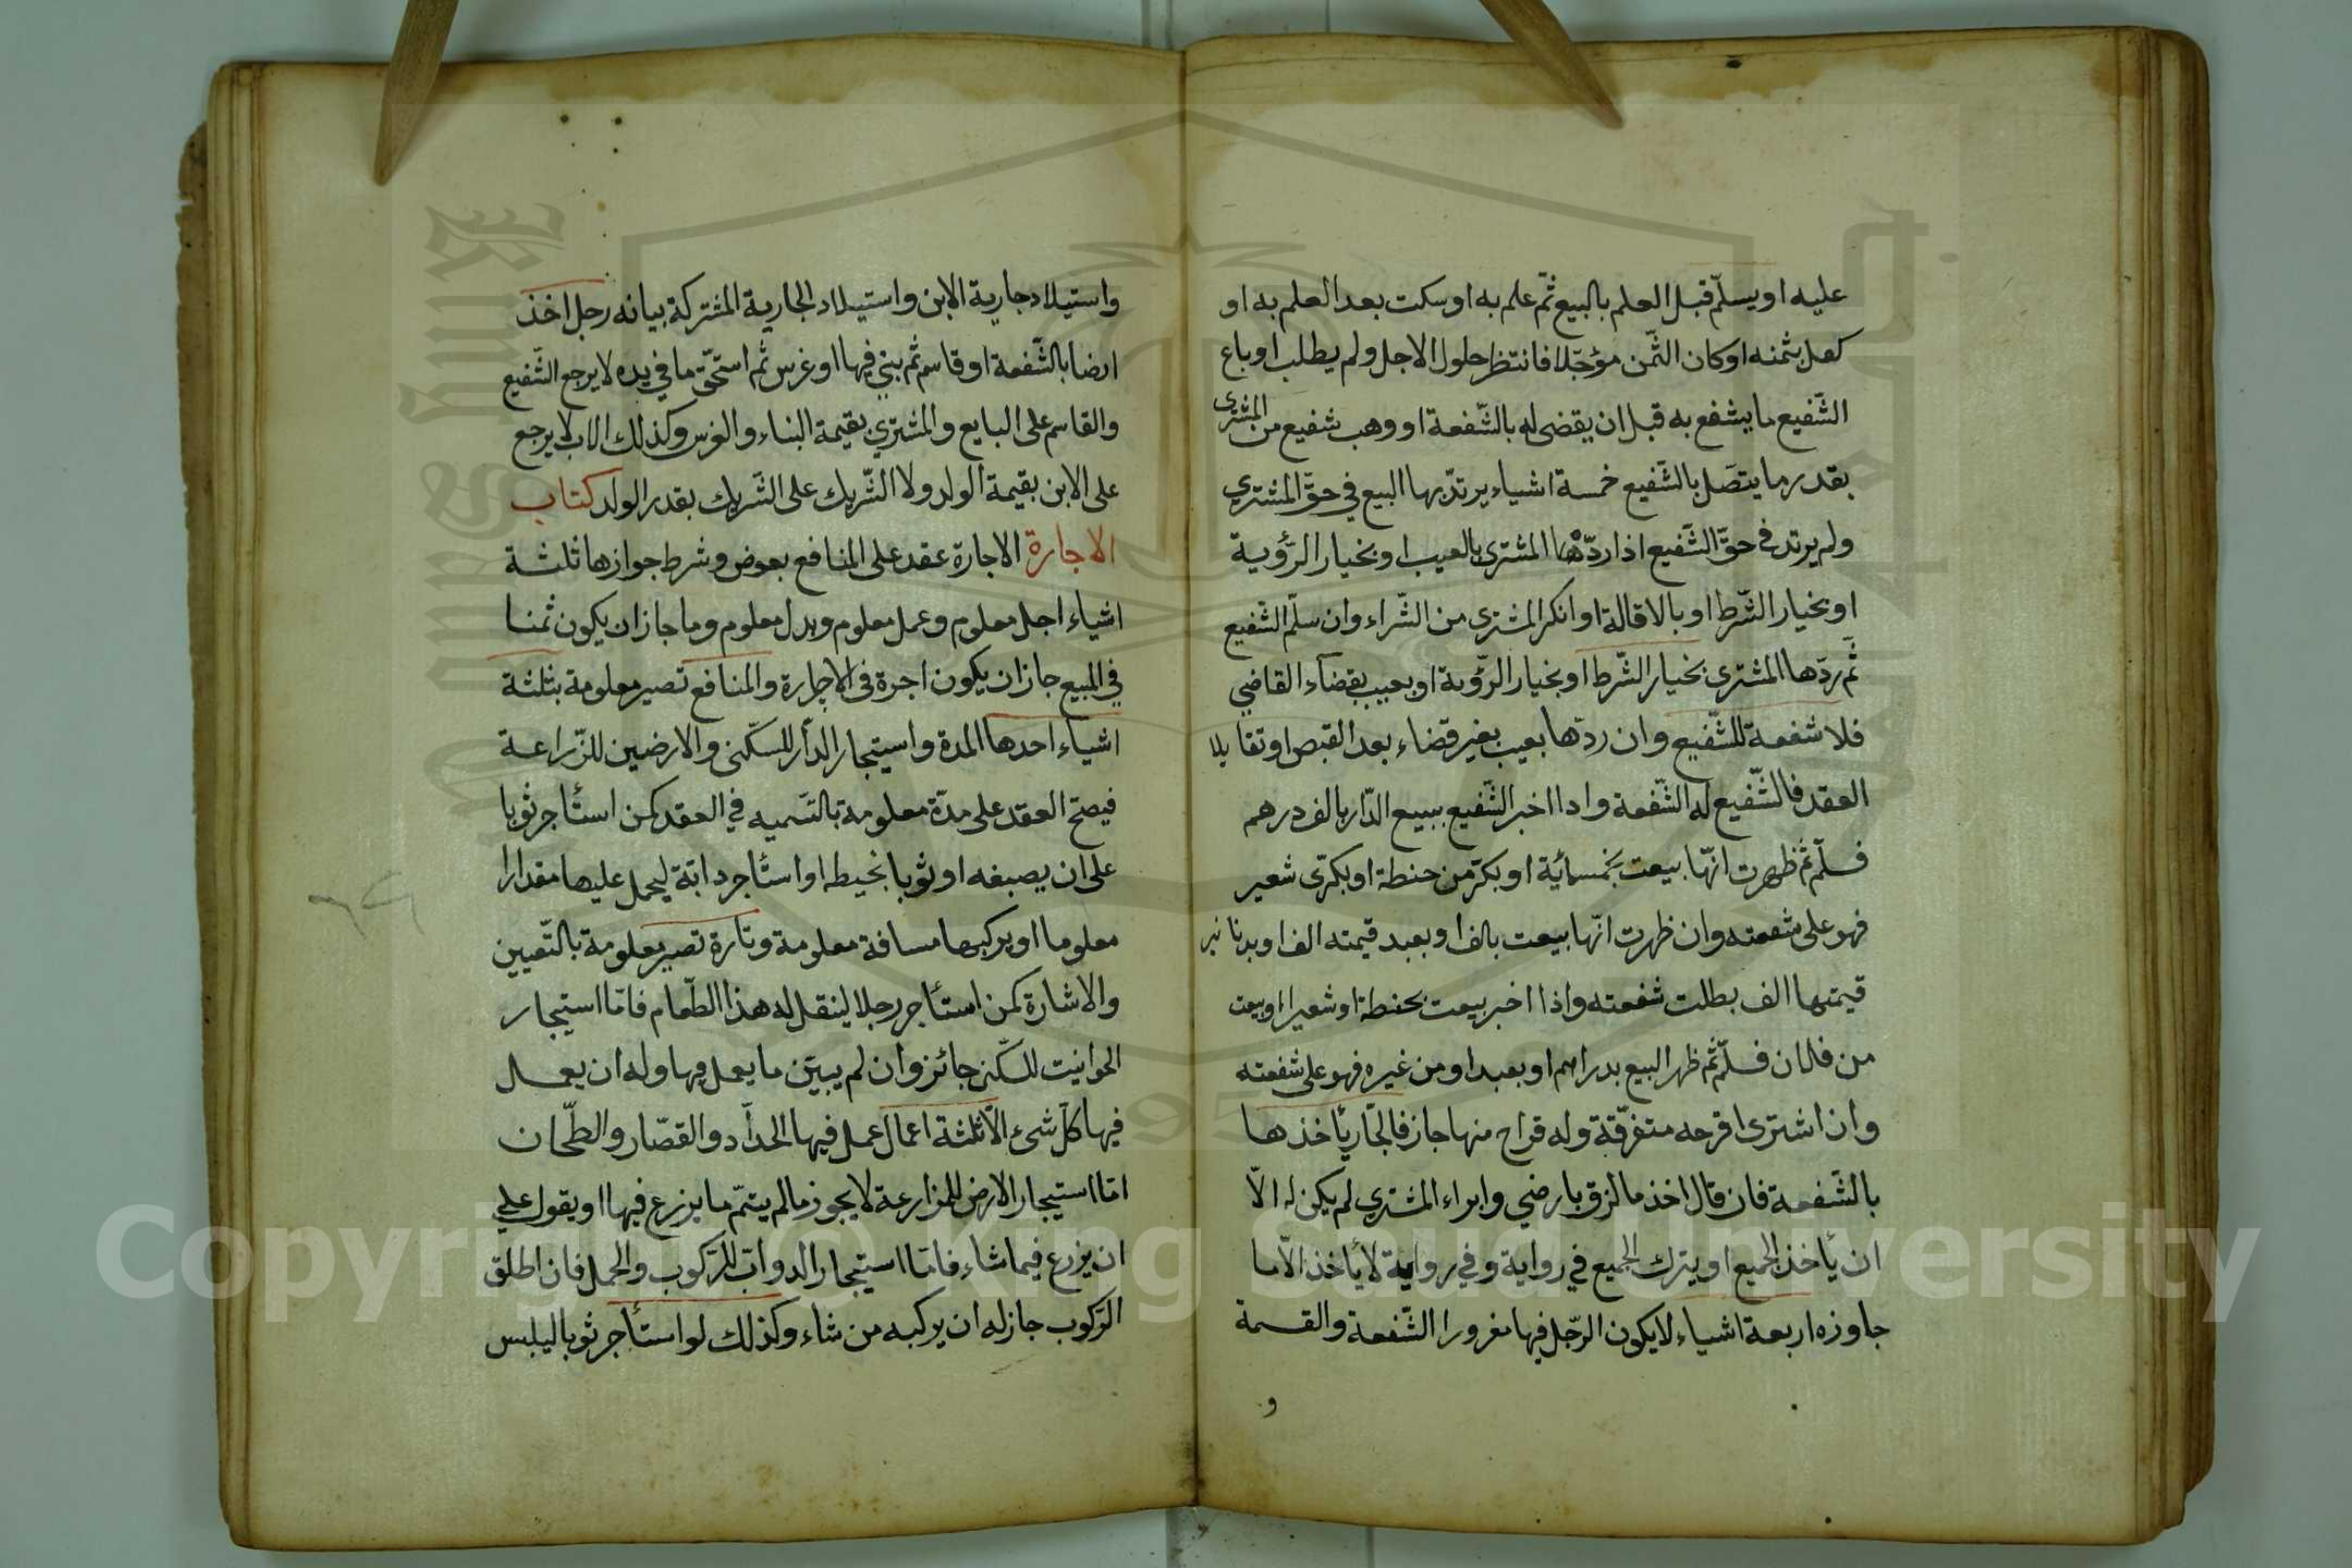 عليه او يسلّم قبل العلم بالبيع ثمّ علم به او سكت بعد العلم به او
كفل بثمنه او كان الثّمن مؤجّلا فانتظر حلول الاجل ولم يطلب او باع
الشّفيع ما يشفع به قبل ان يقضى له بالشّفعة او وهب شفيع من المشترى
بقدر ما يتصل بالشّفيع خمسة اشياء يرتدّ بها البيع في حقّ المشتري
ولم يرتد في حقّ الشّفيع اذا ردّها المشترى بالعيب او بخيار الرّؤية
او بخيار الشّرط او بالاقالة او انكر المشترى من الشّراء وان سلّم الشّفيع
ثمّ ردّها المشترى بخيار الشّرط او بخيار الرّؤية او بعيب بقضاء القاضي
فلا شفعة للشّفيع وان ردّها بعيب بغير قضاء بعد القبض او تقايلا
العقد فالشّفيع له الشّفعة واذا اخبر الشّفيع ببيع الدّار بالف درهم
فسلّم ثمّ ظهرت انّها بيعت بخمسمائة او بكرّ من حنطة او بكرّى شعير
فهو على شفعته وان ظهرت انّها بيعت بالف او بعبد قيمته الف او بدنانير
قيمتها الف بطلت شفعته واذا اخبر بيعت بحنطة او شعير او بيعت
من فلان فسلّم ثمّ ظهر البيع بدراهم او بعبد او من غيره فهو على شفعته
وان اشترى اقرحه متفرّقة وله قراح منها جاز فالجّار يأخذها
بالشّفعة فان قال اخذ ما لزق بارضي وابراء المشتري لم يكن له الّا
ان يأخذ الجميع او يترك الجميع في رواية وفي رواية لا يأخذ الّا ما
جاوزه اربعة اشياء لا يكون الرّجل فيها مغرورا الشّفعة والقسمة
و
واستيلاد جارية الابن واستيلاد الجارية المشتركة بيانه رجل اخذ
ارضا بالشّفعة او قاسم ثمّ بنى فيها او غرس ثم استحقّ ما في يده لا يرجع الشّفيع
والقاسم على البايع والمشتري بقيمة البناء والغرس وكذلك الاب لا يرجع
على الابن بقيمة الولد ولا الشّريك على الشّريك بقدر الولد كتاب
الاجارة الاجارة عقد على المنافع بعوض وشرط جوازها ثلثة
اشياء اجل معلوم وعمل معلوم وبدل معلوم وما جاز ان يكون ثمنا
في المبيع جاز ان يكون اجرة فى الاجارة والمنافع تصير معلومة بثلثة
اشياء احدها المدة واستيجار الدّار للسّكنى والارضين للزّراعة
فيصحّ العقد على مدّة معلومة بالتّسميه في العقد كمن استأجر ثوبا
على ان يصبغه او ثوبا نخيطه او استأجر دابّة ليحمل عليها مقدارا
معلوما او يركبها مسافة معلومة وتارة تصير معلومة بالتّعيين
والاشارة كمن استأجر رجلا لينقل له هذا الطّعام فامّا استيجار
الحوانيت للسّكنى جائز وان لم يبيّن ما يعمل فيها وله ان يعمل
فيها كلّ شىء الّا ثلثة اعمال عمل فيها الحدّاد والقصّار والطّحان
امّا استيجار الارض للمزارعة لا يجوز ما لم يتمّ ما يزرع فيها او يقول علي
ان يزرع فيما شاء فامّا استيجار الدوابّ للرّكوب والحمل فان اطلق
الرّكوب جاز له ان يركبه من شاء وكذلك لو استأجر ثوبا ليلبس
Copyright © King Saud University